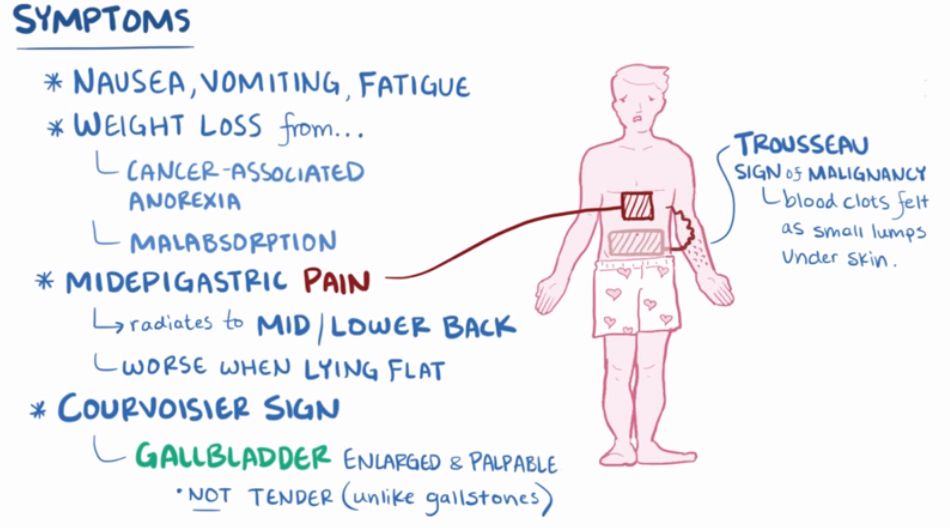 SYMPTOMS
* NAUSEA, VOMITING, FATIGUE
* WEIGHT LOSS from...
CANCER-ASSOCIATED
ANOREXIA
MALABSORPTION
* MIDEPIGASTRIC PAIN
→ radiates to MID/LOWER BACK
WORSE WHEN LYING FLAT
* COURVOISIER SIGN
GALLBLADDER ENLARGED & PALPABLE
• NOT TENDER (unlike gallstones)
TROUSSEAU
SIGN of MALIGNANCY
blood clots felt
as small lumps
under skin.